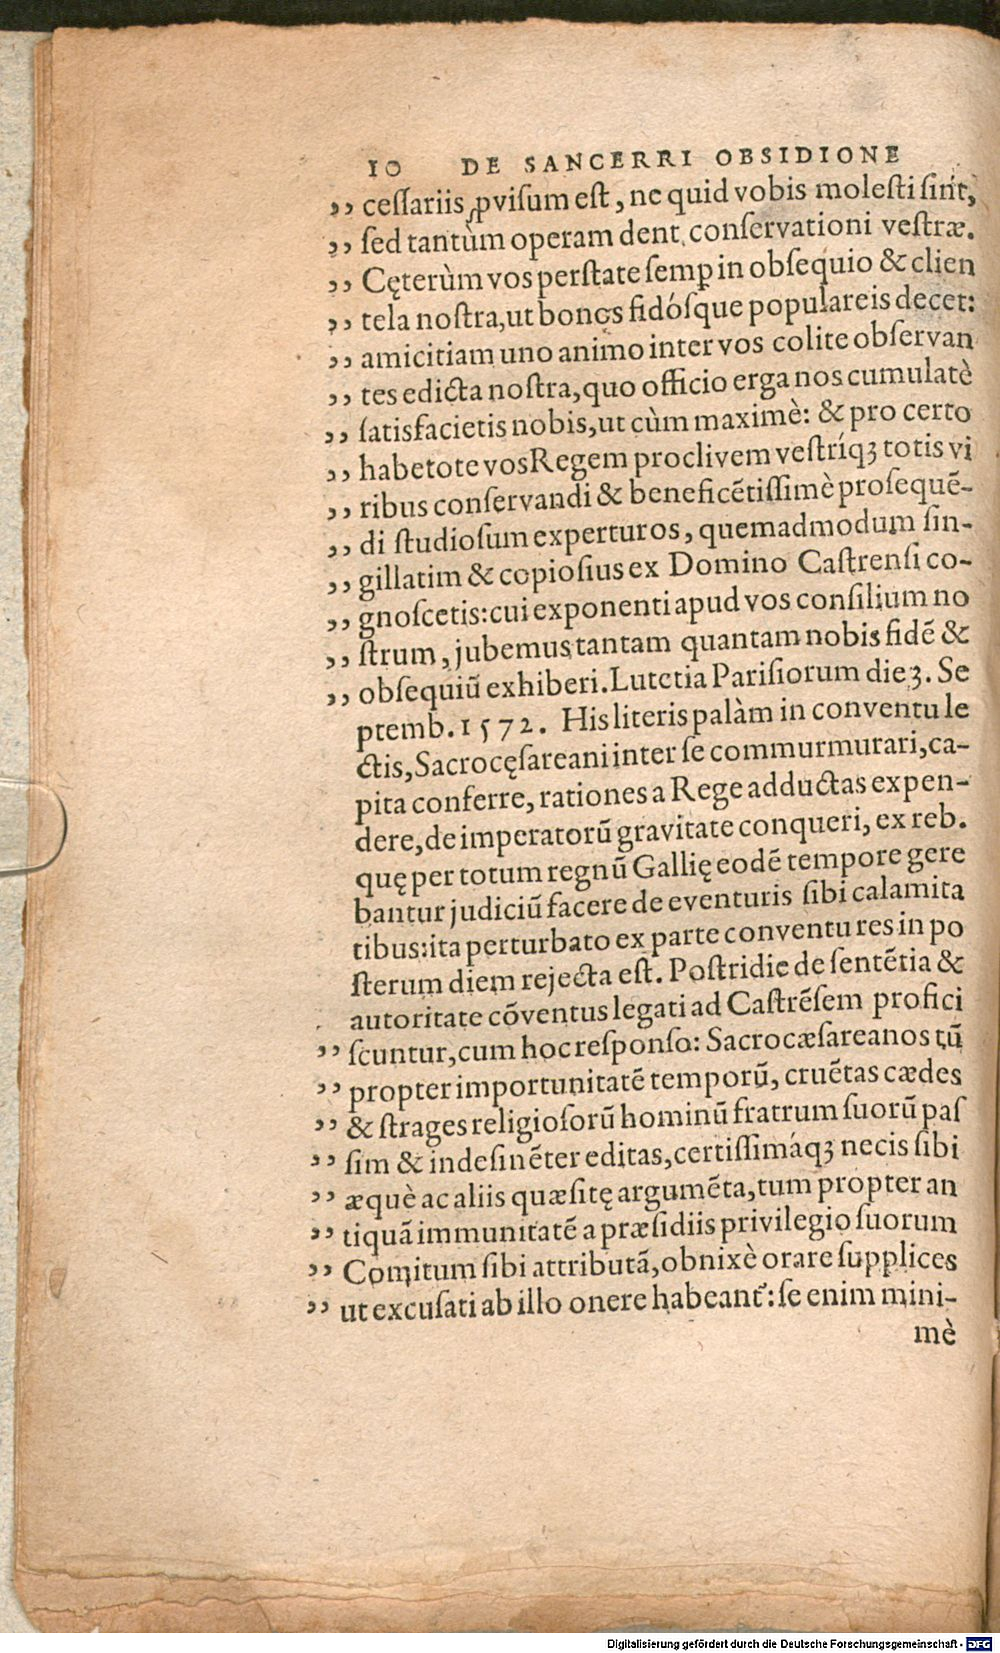 10 DE SANCERRI OBSIDIONE
,, ceſſariis ꝓviſum eſt, ne quid vobis moleſti ſint,
,, ſed tantùm operam dent conſervationi veſtræ.
,, Cęterùm vos perſtate ſemp in obſequio & clien
,, tela noſtra, ut bonos fidóſque populareis decet:
,, amicitiam uno animo inter vos colite obſervan
,, tes edicta noſtra, quo officio erga nos cumulatè
,, ſatisfacietis nobis, ut cùm maximè: & pro certo
,, habetote vos Regem proclivem veſtríqꝫ totis vi
,, ribus conſervandi & beneficẽtiſſimè proſequẽ-
,, di ſtudioſum experturos, quemadmodum ſin-
,, gillatim & copioſius ex Domino Caſtrenſi co-
,, gnoſcetis: cui exponenti apud vos conſilium no
,, ſtrum, jubemus tantam quantam nobis fidẽ &
,, obſequiũ exhiberi. Lutetia Pariſiorum die 3. Se
ptemb. 1572. His literis palàm in conventu le
ctis, Sacrocęſareani inter ſe commurmurari, ca-
pita conferre, rationes a Rege adductas expen-
dere, de imperatorũ gravitate conqueri, ex reb.
quę per totum regnũ Gallię eodẽ tempore gere
bantur judiciũ facere de eventuris ſibi calamita
tibus: ita perturbato ex parte conventu res in po
ſterum diem rejecta eſt. Poſtridie de ſentẽtia &
autoritate cõventus legati ad Caſtrẽſem profici
,, ſcuntur, cum hoc reſponſo: Sacrocæſareanos tũ
,, propter importunitatẽ temporũ, cruẽtas cædes
,, & ſtrages religioſorũ hominũ fratrum ſuorũ paſ
,, ſim & indeſinẽter editas, certiſſimáqꝫ necis ſibi
,, æquè ac aliis quæſitę argumẽta, tum propter an
,, tiquã immunitatẽ a præſidiis privilegio ſuorum
,, Comitum ſibi attributã, obnixè orare ſupplices
,, ut excuſati ab illo onere habeant᷑: ſe enim mini-
mè
Digitalisierung gefördert durch die Deutsche Forschungsgemeinschaft - DFG